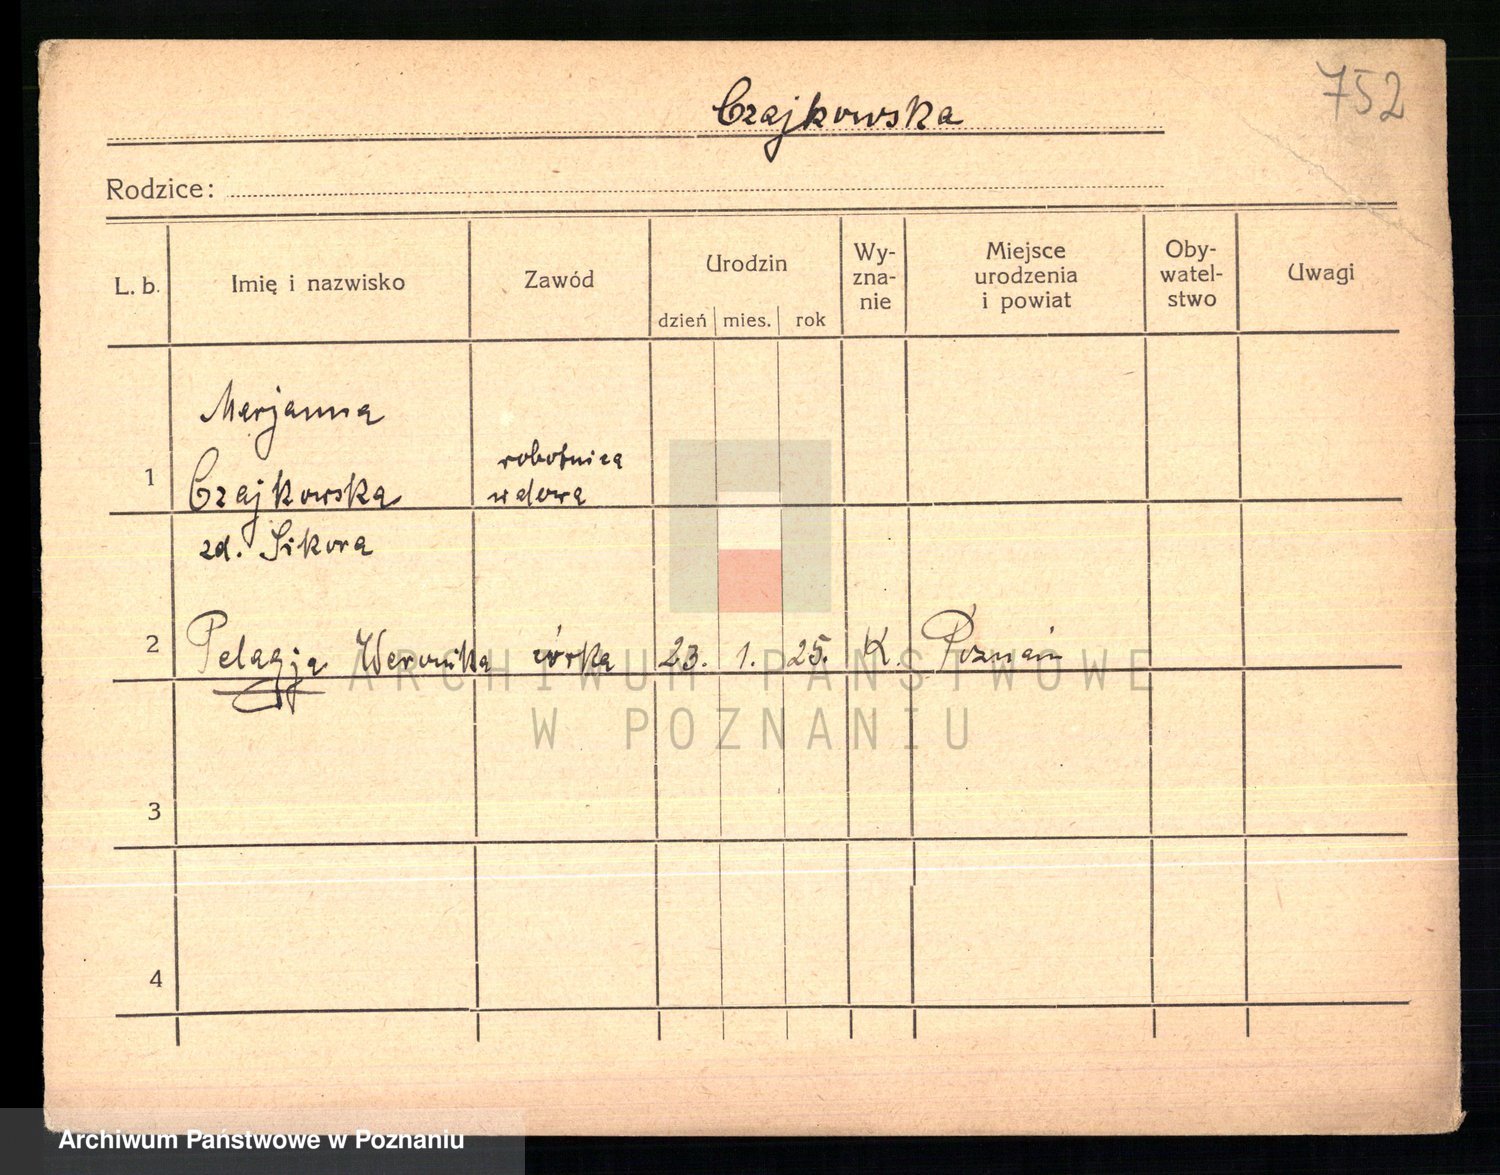 752
Czajkowska
Rodzice:
L. b.
Imię i nazwisko
Zawód
Urodzin
dzień
mies.
rok
Wy-
zna-
nie
Miejsce
urodzenia
i powiat
Oby-
watel-
stwo
Uwagi
1
Marjanna
Czajkowska
zd. Sikora
robotnica
wdowa
2
Pelagja Weronika
córka
23. 1. 25.
K.
Poznań
3
4
ARCHIWUM PAŃSTWOWE
W POZNANIU
Archiwum Państwowe w Poznaniu